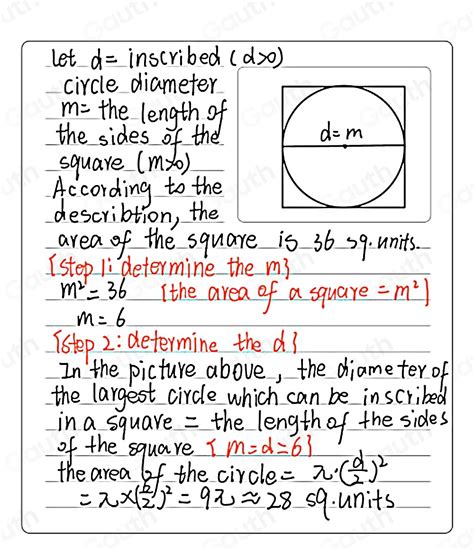 let d= inscribed (d>0)
circle diameter
m= the length of
the sides of the
square (m>0)
According to the
describtion, the
area of the square is 36 sq.units.
d=m
{step 1: determine the m}
m²=36 [the area of a square = m²]
m=6
{step 2: determine the d}
In the picture above, the diameter of
the largest circle which can be inscribed
in a square = the length of the sides
of the square { m=d=6}
the area of the circle= π·(d/2)²
=π×(6/2)²=9π≈28 sq.units